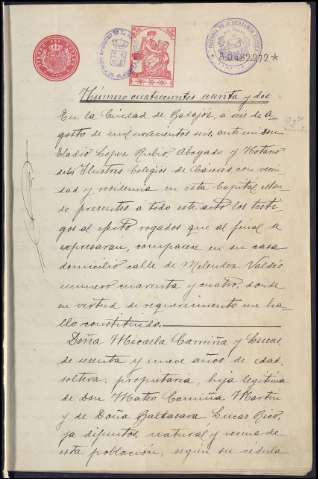 A0482972*
Número cuatrocientos sesenta y dos
En la Ciudad de Badajoz, a seis de A-
gosto de mil novecientos seis, ante mi Don
Eladio López Rubio, Abogado y Notario
del Ilustre Colegio de Cáceres, con vecin-
dad y residencia en esta Capital, estan-
do presentes a todo este acto los testi-
gos al efecto rogados que al final se
expresaran, comparece en su casa
domicilio calle de Melendez Valdés
número cuarenta y cuatro, donde
en virtud de requerimiento me ha-
llo constituido.
Doña Micaela Carmiña y Lucas,
de sesenta y nueve años de edad,
soltera, propietaria, hija legítima
de Don Mateo Carmiña Martin
y de Doña Baldasara Lucas Rico,
ya difuntos, natural y vecina de
esta población, según su cédula